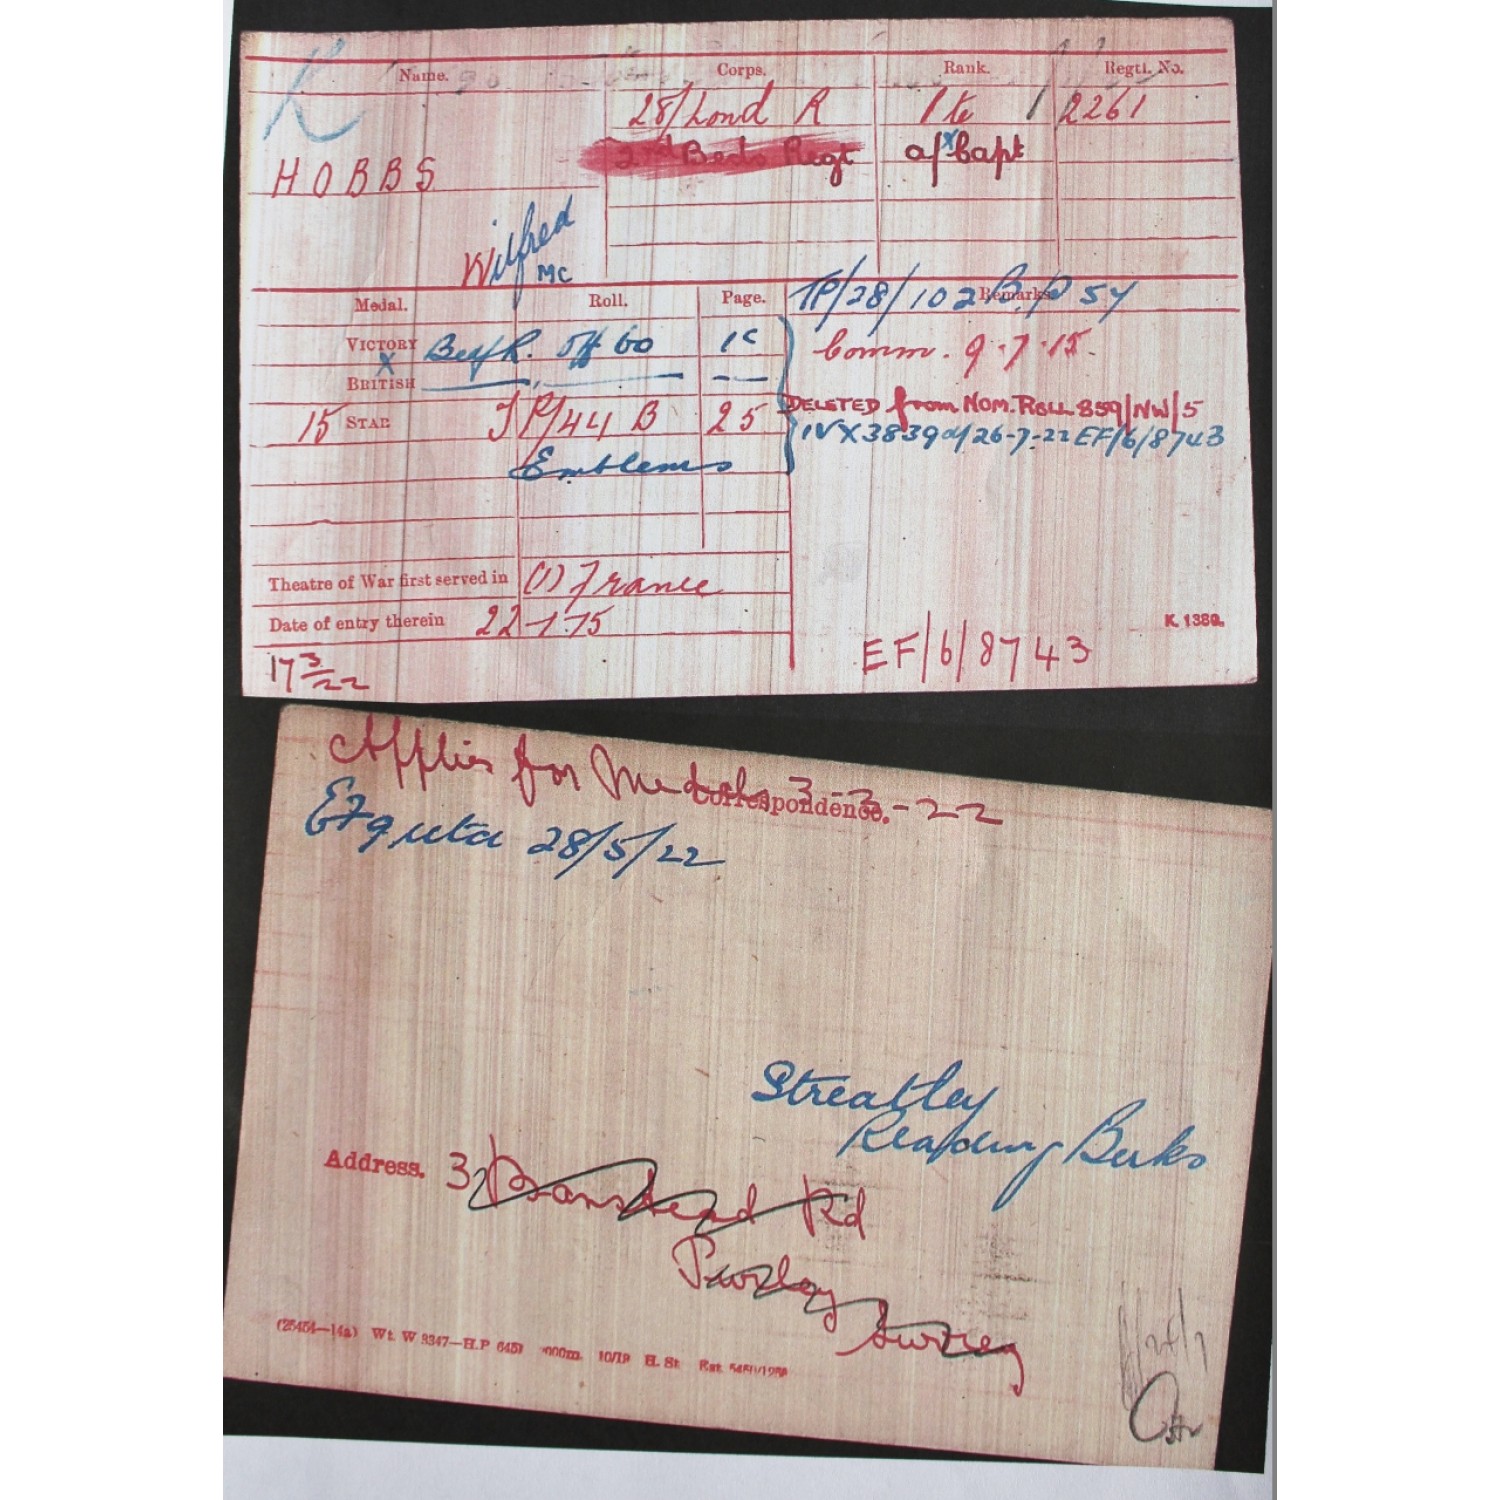 K
Name. Corps. Rank. Regtl. No.
28/Lond R Pte 2261
2nd Beds Regt a/Capt
HOBBS
Wilfred
MC
Medal. Roll. Page. Remarks
TP/28/102 B. P 54
VICTORY Bedf R. Off 60 1C
Comm. 9.7.15.
X
BRITISH
DELETED from NOM. ROLL 859/NW/5
15 STAR TP/44 B 25
IV X 3839 d/ 26-7-22 EF/6/8743
Emblems
Theatre of War first served in (1) France
Date of entry therein 22-1-15
K. 1380.
17 3/22
EF/6/8743
Applies for Medals 3-3-22
Correspondence.
28/5/22
Streatley
Reading Berks
Address. 32 Banstead Rd
Purley
Surrey
(25454—14a) Wt. W 3347—H.P 6451 000m. 10/19 H. St